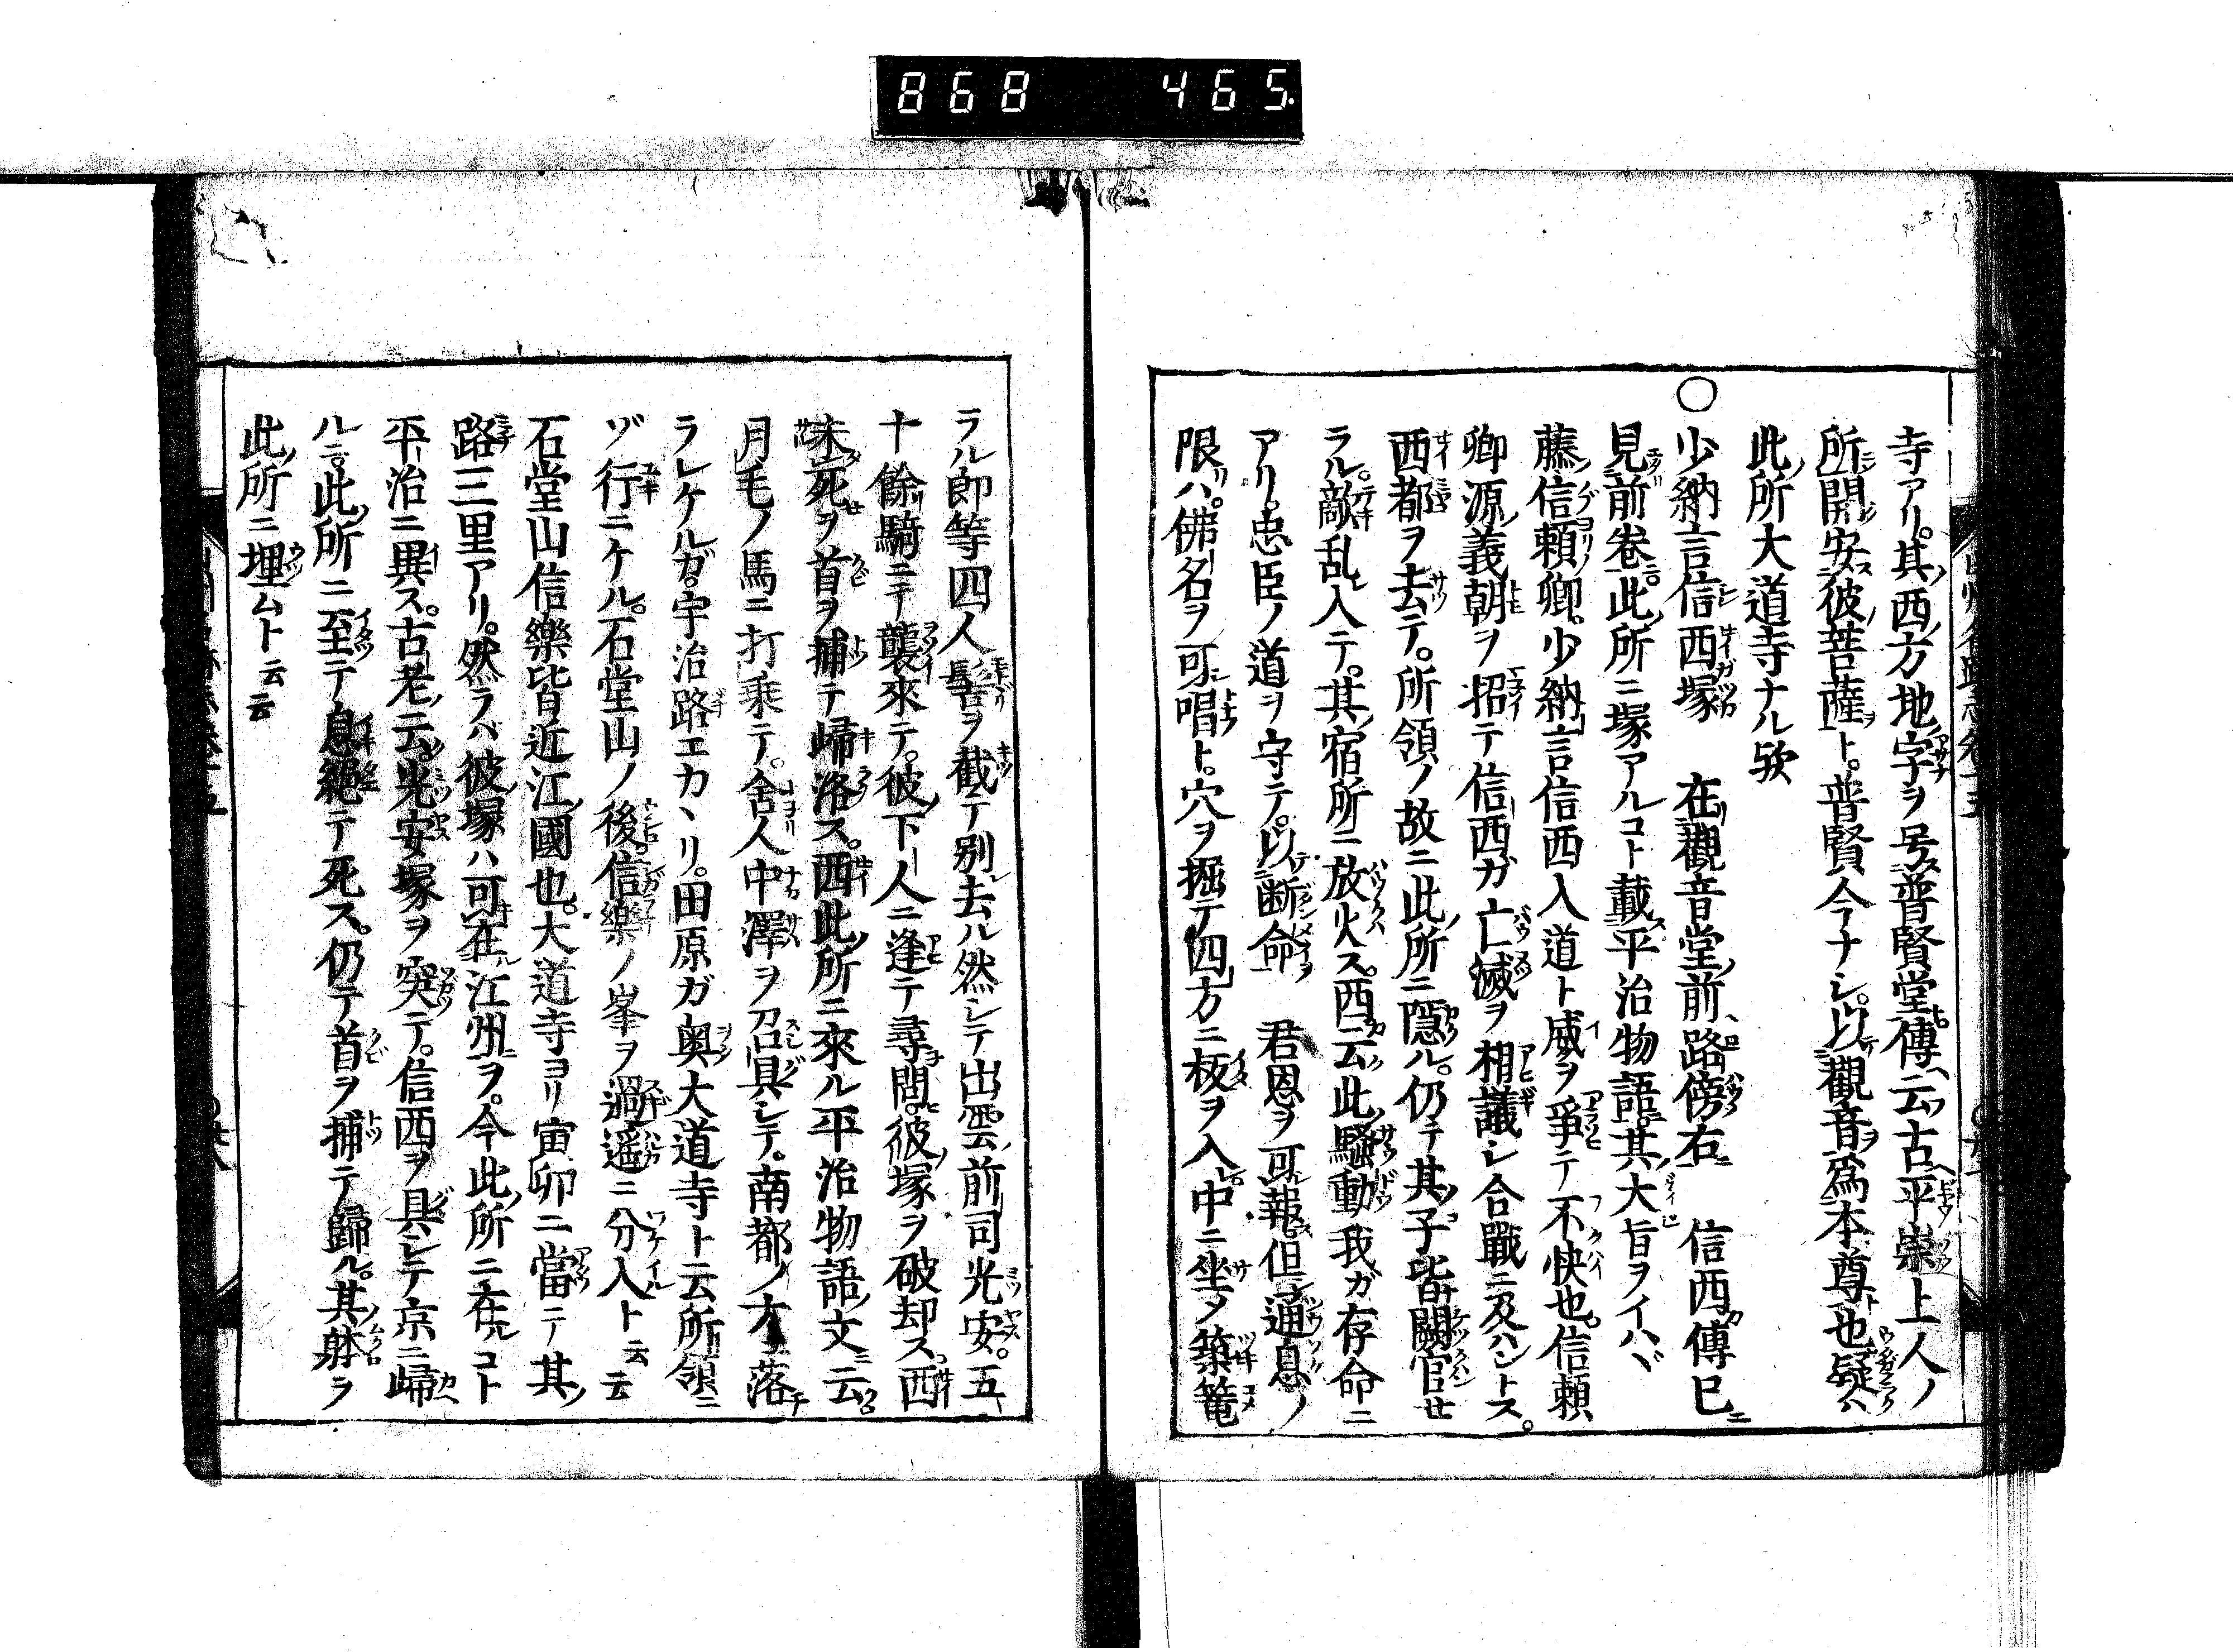 868 465
寺アリ。其西方地字ヲ号ス普賢堂傳云古ヘ平崇上人ノ
所開安ス彼菩薩ヲト。普賢今ナシ。以觀音ヲ為本尊ト也疑ハ
此ノ所大道寺ナル欤
〇少納言信西塚 在觀音堂前路傍右ニ 信西カ傳已ニ
見前卷ニ。此ノ所ニ塚アルコト載ス平治物語ニ。其大旨ヲイハヾ
藤ノ信頼卿。少納言信西入道ト威ヲ爭テ不快也。信頼
卿源ノ義朝ヲ招テ信西ガ亡滅ヲ相議シ合戰ニ及ハントス。
西都ヲ去テ。所領ノ故ニ此ノ所ニ隱ル。仍テ其ノ子皆闕官せ
ラル。敵乱レ入テ。其ノ宿所ニ放火ス。西云此ノ騒動我ガ存命ニ
アリ。忠臣ノ道ヲ守テ。以断命ヲ 君恩ヲ可報ス。但シ通息ノ
限リハ。佛名ヲ可唱ト。穴ヲ掘テ四方ニ板ヲ入レ。中ニ坐メ築篭
ラル郎等四人髻ヲ截テ別レ去ル然シテ出雲ノ前司光安。五
十餘騎ニテ襲來テ。彼ノ下人ニ逢テ尋問ヒ。彼ノ塚ヲ破却ス西
未死せヲ首ヲ捕テ歸洛ス。西此ノ所ニ來ル平治物語ノ文ニ云ク
月毛ノ馬ニ打乘テ。舎人中澤ヲ召具シテ。南都ノ方ヘ落
ラレケルガ。宇治路エカヽリ。田原ガ奥大道寺ト云所領ニ
ゾ行ニケル。石堂山ノ後信樂ノ峯ヲ過遥ニ分入ト云云
石堂山信樂皆近江ノ國也。大道寺ヨリ寅卯ニ當テ其ノ
路三里アリ。然ラバ彼ノ塚ハ可在ル江州ニヲ。今此ノ所ニ在ルコト
平治ニ異ス。古老ノ云ク。光安塚ヲ突テ。信西ヲ具シテ京ニ歸
ルニ。此ノ所ニ至テ息絶テ死ス。仍テ首ヲ捕テ歸ル。其ノ躰ヲ
此ノ所ニ埋ムト云云